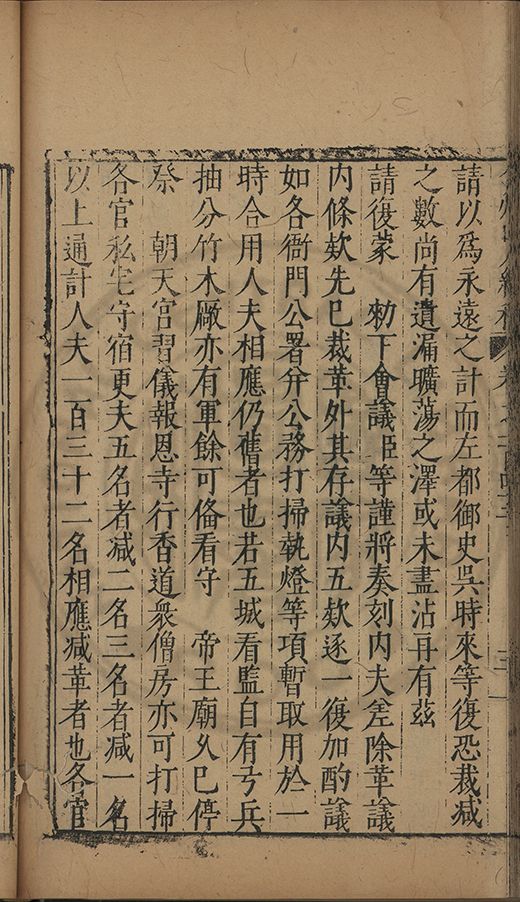 請以爲永遠之計而左都御史吳時來等復恐裁减
之數尚有遺漏曠蕩之澤或未盡沾再有兹
請復蒙　勑下會議臣等謹將奏刻内夫差除革議
内條欵先已裁革外其存議内五欵逐一復加酌議
如各衙門公署并公務打掃執燈等項暫取用於一
時合用人夫相應仍舊者也若五城看監自有弓兵
抽分竹木厰亦有軍餘可偹看守　帝王廟久已停
祭　朝天宫習儀報恩寺行香道衆僧房亦可打掃
各官私宅守宿更夫五名者减二名三名者减一名
以上通計人夫一百三十二名相應减革者也各官